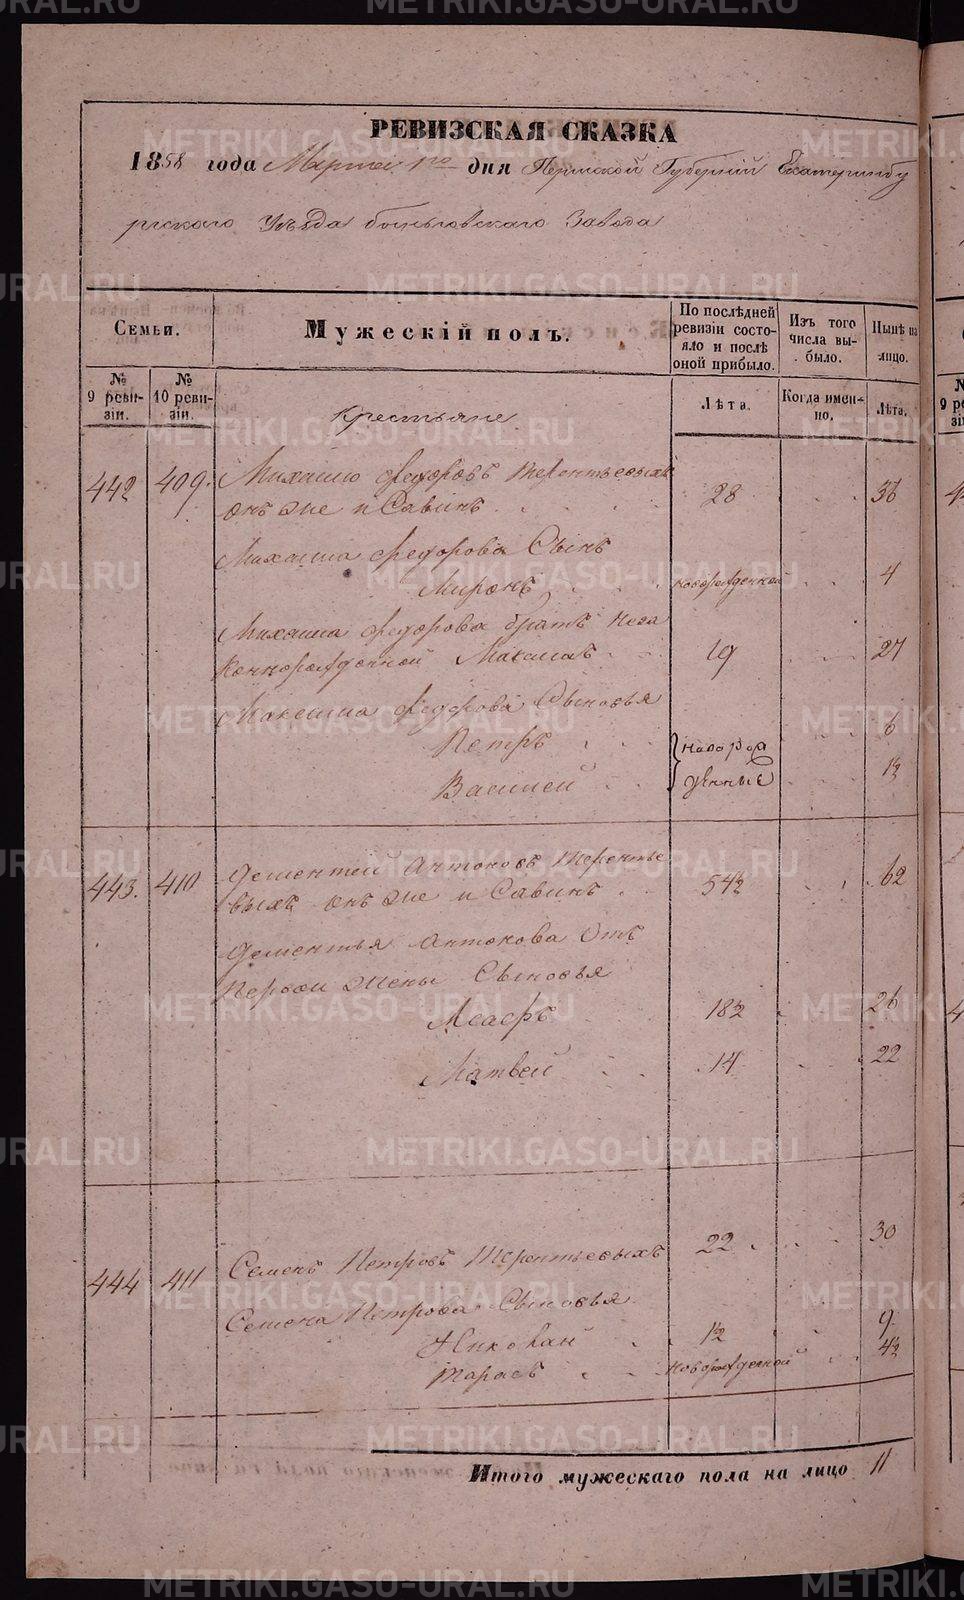 РЕВИЗСКАЯ СКАЗКА
1858 года Марта 1го дня Пермской Губерній Екатеринбу
ргскаго Уѣзда Завода
Семьи.
Мужескій полъ.
По послѣдней ревизіи состояло и послѣ оной прибыло.
Изъ того числа выбыло.
Нынѣ на лицо.
№ 9 ревизіи.
№ 10 ревизіи.
Лѣта.
Когда именно.
Лѣта.
Крестьяне
442 409. Михайло Федоровъ Терентьевыхъ
онъ же и Савинъ 28 36
Михайла Федорова Сынъ
Миронъ новорожденной 4
Михайла Федорова братъ
Максимъ 19 27
Максима Федорова Сыновья
Петръ новорож 6
Василей денные 1½
443. 410 Дементей Антоновъ Теренть
евыхъ онъ же и Савинъ 54½ 62
Дементья Антонова Отъ
Первой жены Сыновья
18½ 26
Матвей 14 22
444 411 Семенъ Петровъ Терентьевыхъ 22 30
Семена Петрова Сыновья
1½ 9
Тарасъ новорожденной 4½
Итого мужескаго пола на лицо 11
METRIKI.GASO-URAL.RU